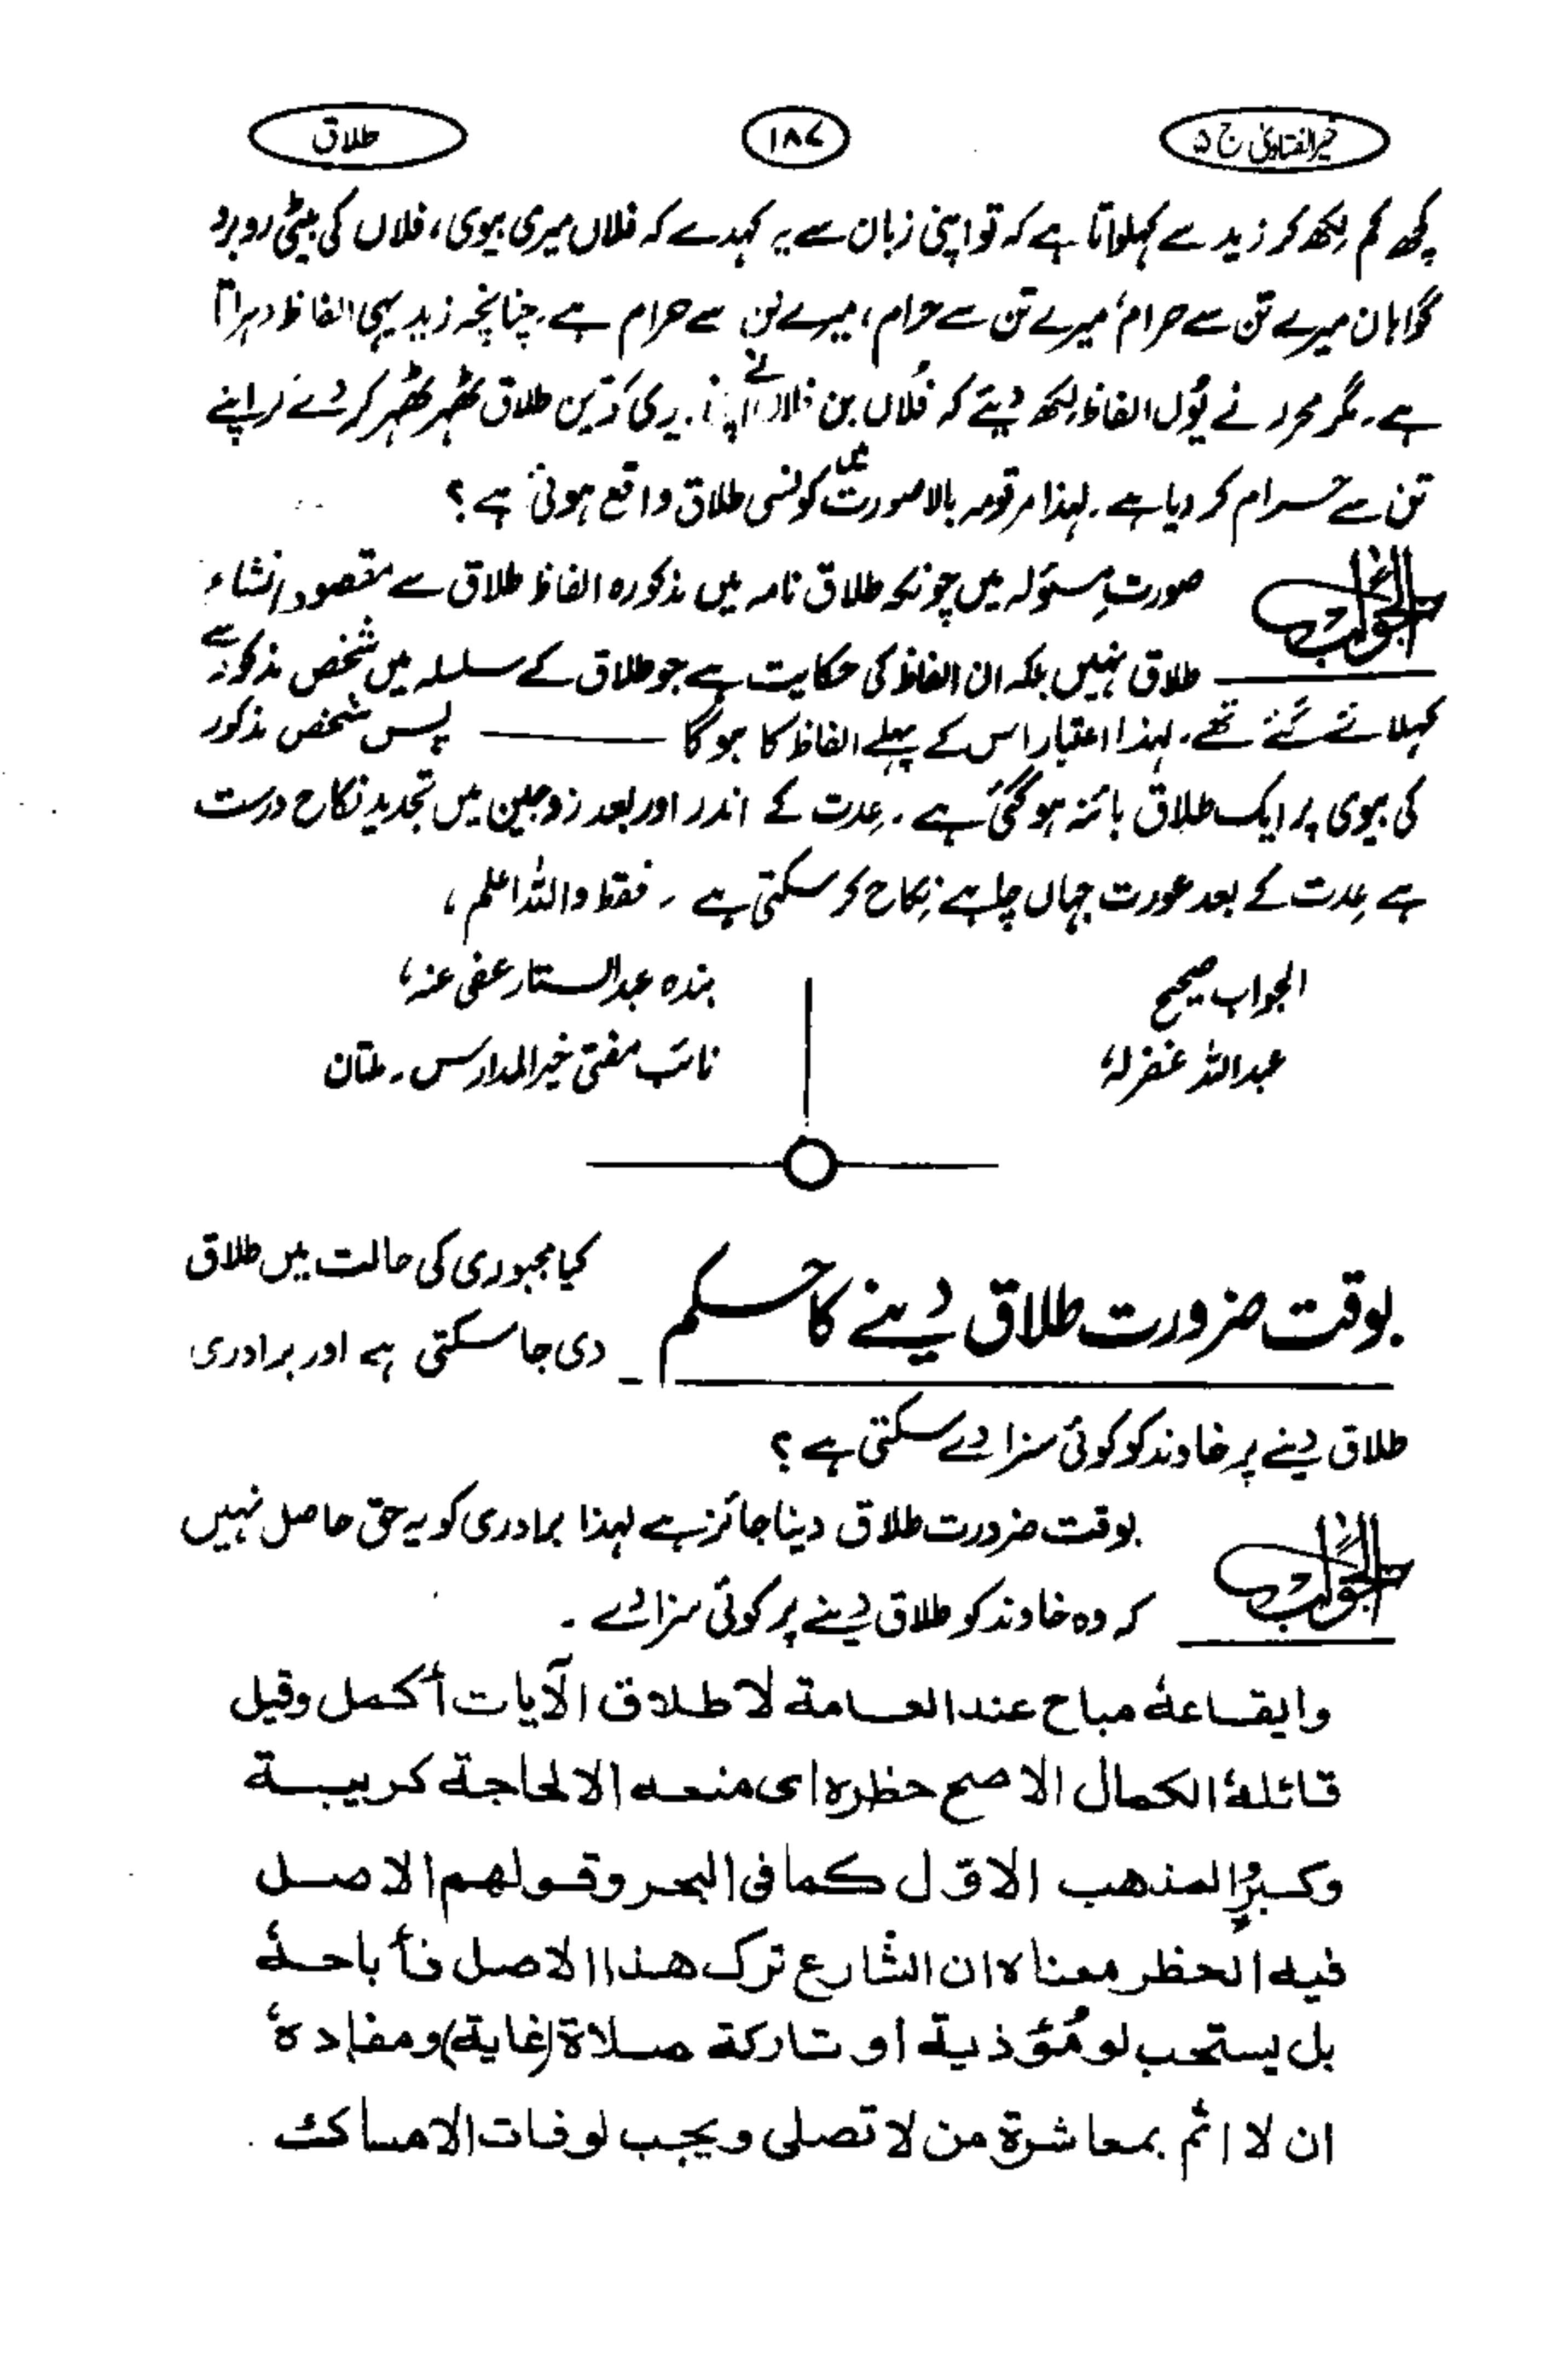 خیر الفتاویٰ ج ۵
۱۸۷
طلاق
کچھ کم لکھ کر زید سے کہلواتا ہے کہ تو اپنی زبان سے یہ کہدے کہ فلاں میری بیوی، فلاں کی بیٹی روبرو
گواہان میرے تن سے حرام، میرے تن سے حرام، میرے تن سے حرام ہے۔ چنانچہ زید یہی الفاظ دہراتا
ہے۔ مگر محرر نے یوں الفاظ لکھ دیئے کہ فلاں بن فلاں نے اپنی بیوی کو تین طلاق ٹھہر ٹھہر کر دے کر اپنے
تن سے حرام کر دیا ہے۔ لہذا مرقومہ بالا صورت میں کونسی طلاق واقع ہوئی ہے؟
الجواب
صورتِ مسئولہ میں چونکہ طلاق نامہ میں مذکورہ الفاظ طلاق سے مقصود انشاء
طلاق نہیں بلکہ ان الفاظ کی حکایت ہے جو طلاق کے سلسلہ میں شخص مذکور سے
کہلائے گئے تھے۔ لہذا اعتبار اس کے پہلے الفاظ کا ہوگا ——— پس شخص مذکور
کی بیوی پر ایک طلاق بائنہ ہوگئی ہے۔ عدت کے اندر اور بعد زوجین میں تجدید نکاح درست
ہے عدت کے بعد عورت جہاں چاہے نکاح کر سکتی ہے۔ فقط واللہ اعلم،
الجواب صحیح
عبداللہ غفرلہٗ
بندہ عبدالستار عفی عنہ،
نائب مفتی خیر المدارس۔ ملتان
بوقت ضرورت طلاق دینے کا حکم
کیا مجبوری کی حالت میں طلاق
دی جاسکتی ہے اور برادری
طلاق دینے پر خاوند کو کوئی سزا دے سکتی ہے؟
الجواب
بوقت ضرورت طلاق دینا جائز ہے لہذا برادری کو یہ حق حاصل نہیں
کہ وہ خاوند کو طلاق دینے پر کوئی سزا دے۔
وایقاعهٔ مباح عند العامة لاطلاق الآیات أکمل وقیل
قائلهٔ الکمال الاصح حظره ای منعه الا لحاجة کریبة
وکبرٍ والمذهب الاوّل کما فی البحر وقولهم الاصل
فیه الحظر معناه ان الشارع ترک هذا الاصل فأباحهٔ
بل یستحب لو مُؤذیة او تارکة صلاة (غایة) ومفاده
ان لا اثم بمعاشرة من لا تصلی ویجب لو فات الامساک